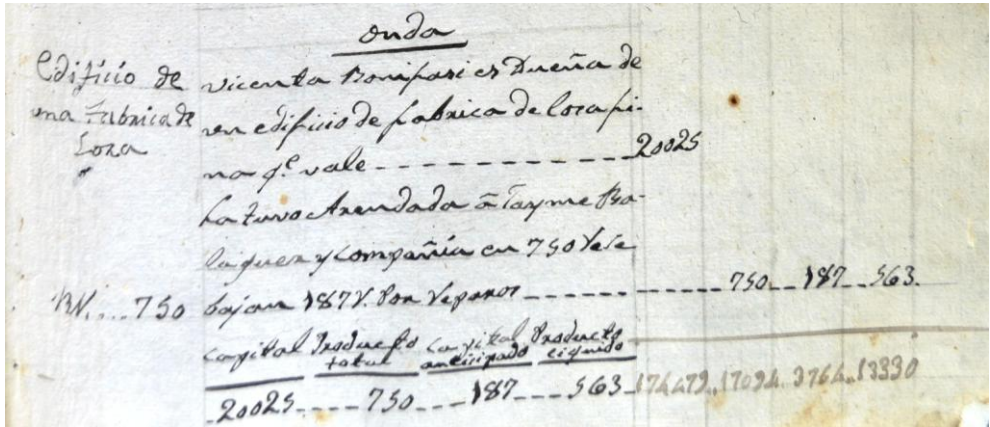 Onda
Edificio de
una Fabrica de
Loza
Vicenta Bonifasi es Dueña de
un edificio de fabrica de loza fi-
na q.e vale - - - - - - - - - - - - 20025
La tuvo Arendada â Jayme Ba-
laguer y Compañia en 750 V.
bajan 187 V. Por Reparos - - - - - - - - - 750 - - 187 - - 563.
RV. . . . 750
Capital Producto total Capital anticipado Producto liquido
20025 - - - - 750 - - - 187 - - - 563 174479. 17094. 3764. 13330